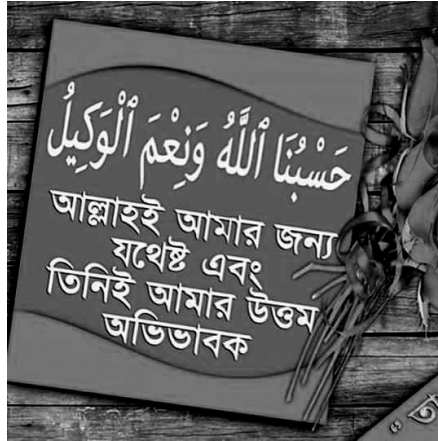 حَسْبُنَا ٱللَّهُ وَنِعْمَ ٱلْوَكِيلُ
আল্লাহই আমার জন্য
যথেষ্ট এবং
তিনিই আমার উত্তম
অভিভাবক